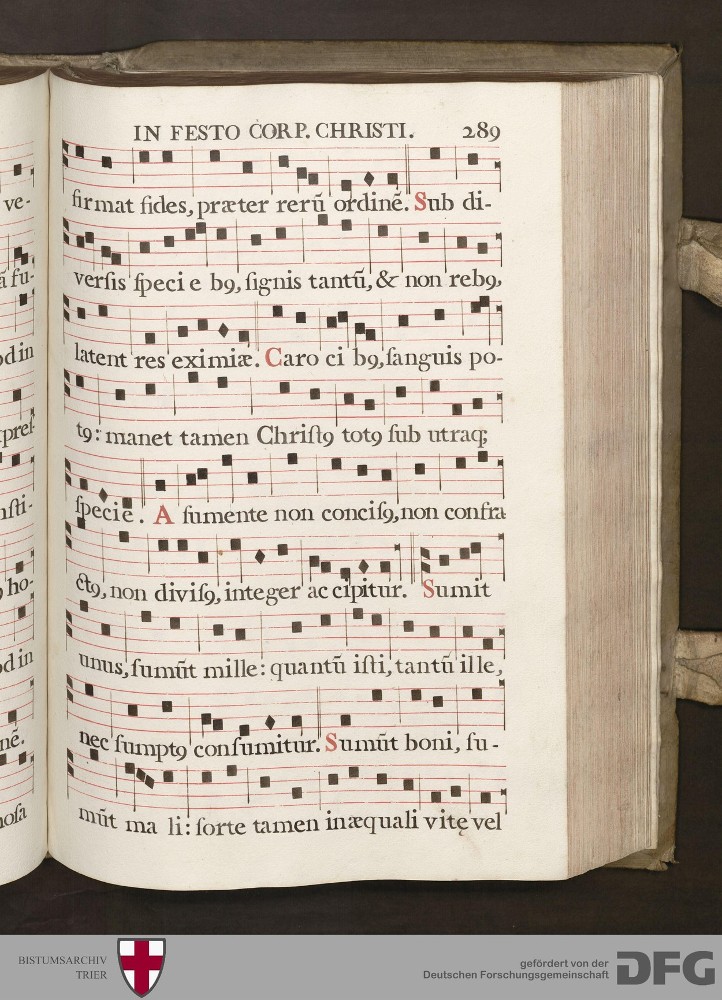 IN FESTO CORP. CHRISTI. 289
firmat fides, præter rerū ordinē. Sub di-
versis speci e b9, signis tantū, & non reb9,
latent res eximiæ. Caro ci b9, sanguis po-
t9: manet tamen Christ9 tot9 sub utraq;
specie. A sumente non concis9, non confra
ct9, non divis9, integer ac cipitur. Sumit
unus, sumūt mille: quantū isti, tantū ille,
nec sumpt9 consumitur. Sumūt boni, su-
mūt ma li: sorte tamen inæquali vitę vel
ve-
ā fu-
od in
prel-
nsti-
ho-
od in
nē.
nosa
BISTUMSARCHIV
TRIER
gefördert von der
Deutschen Forschungsgemeinschaft
DFG